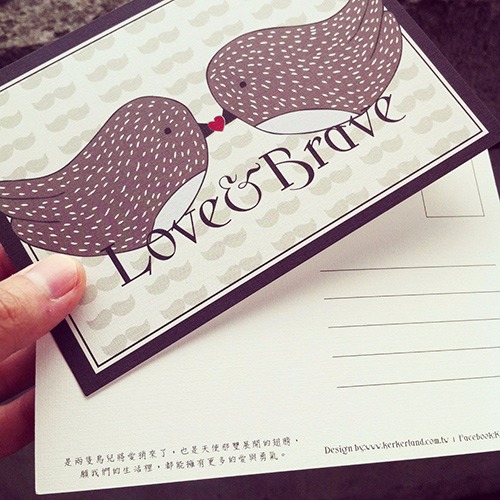 Love&Brave
是兩隻鳥兒將愛捎來了，也是天使那雙展開的翅膀，
願我們的生活裡，都能擁有更多的愛與勇氣。
Design by:www.kerkerland.com.tw | Facebook:K